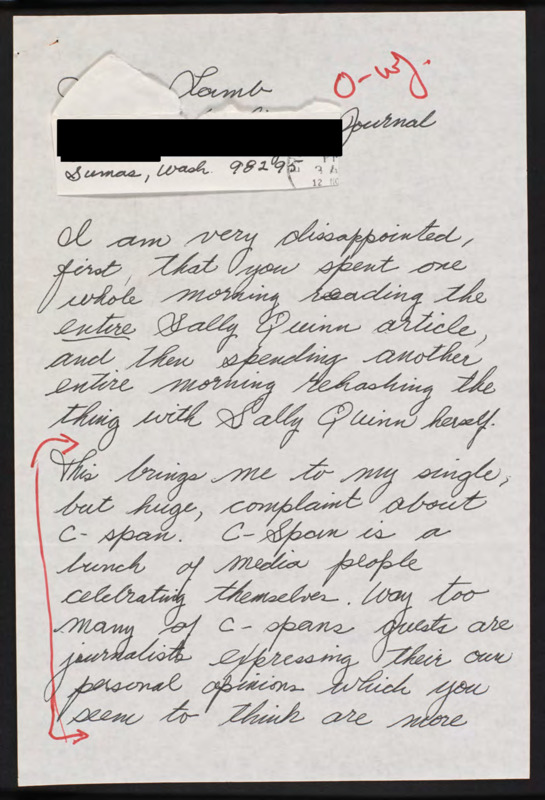 Lamb
O-WJ.
Journal
Sumas, Wash. 98295
12
I am very dissappointed,
first, that you spent one
whole morning reading the
entire Sally Quinn article,
and then spending another
entire morning rehashing the
thing with Sally Quinn herself.
This brings me to my single,
but huge, complaint about
C-span. C-Span is a
bunch of media people
celebrating themselves. Way too
many of C-spans guests are
journalists expressing their own
personal opinions which you
seem to think are more